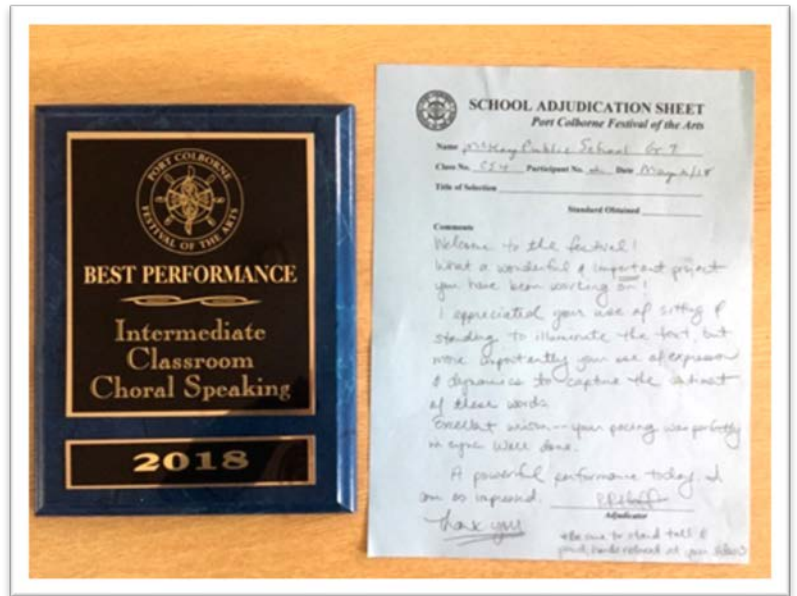 PORT COLBORNE
FESTIVAL OF THE ARTS
BEST PERFORMANCE
Intermediate
Classroom
Choral Speaking
2018
SCHOOL ADJUDICATION SHEET
Port Colborne Festival of the Arts
Name McKay Public School Gr 7
Class No. CS4 Participant No. Date May 2/18
Title of Selection
Standard Obtained
Comments
Welcome to the festival!
What a wonderful & important project
you have been working on!
I appreciated your use of sitting &
standing to illuminate the text, but
more importantly your use of expression
& dynamics to capture the
of these words.
Excellent unison -- your pacing was perfectly
in sync. Well done.
A powerful performance today. I
am so impressed.
Adjudicator
Thank you
*Be sure to stand tall &
proud, hands relaxed at your sides